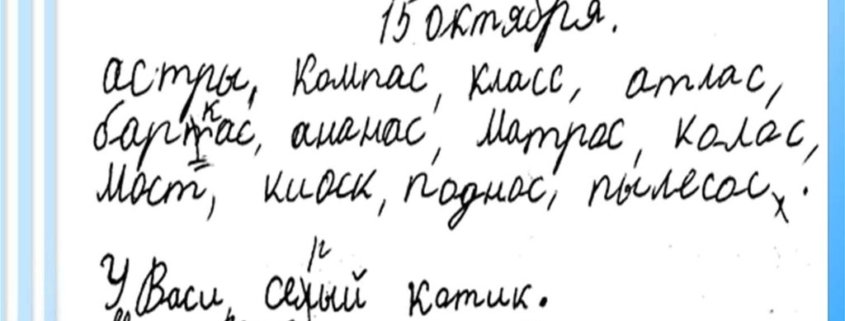 15 октября.
астры, компас, класс, атлас,
баркас, ананас, матрас, колас,
мост, киоск, поднос, пылесос.
У Васи, серый котик.